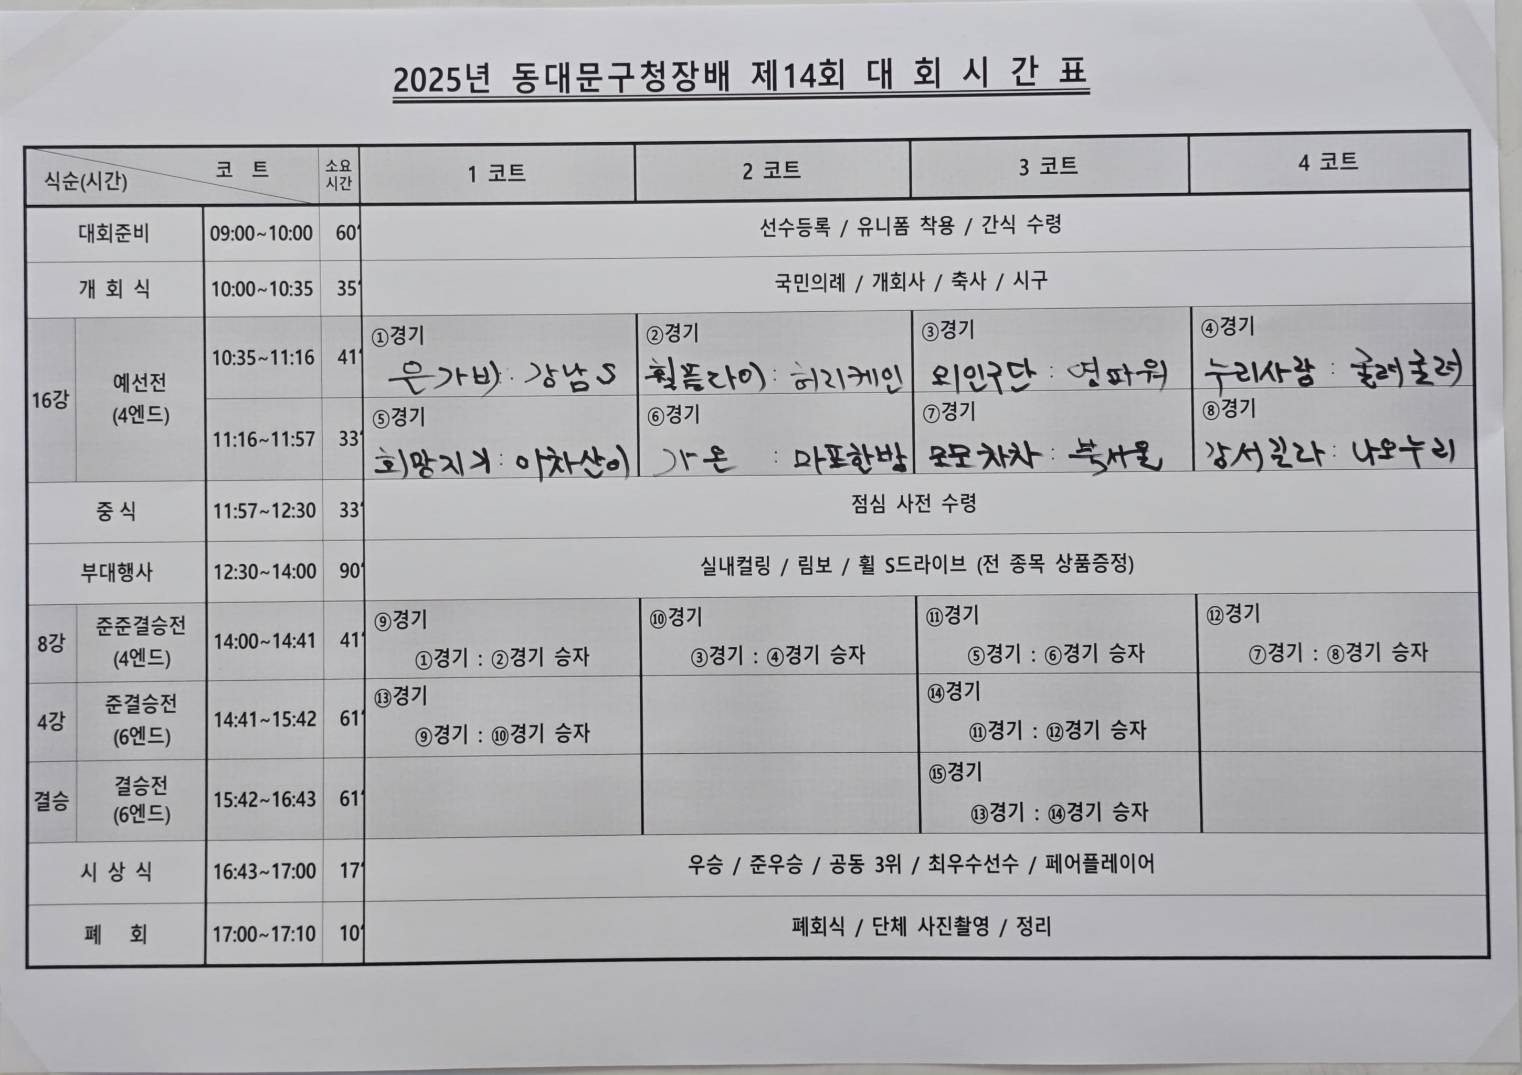 2025년 동대문구청장배 제14회 대 회 시 간 표
코 트
식순(시간)
소요
시간
1 코트
2 코트
3 코트
4 코트
대회준비
09:00~10:00
60'
선수등록 / 유니폼 착용 / 간식 수령
개 회 식
10:00~10:35
35'
국민의례 / 개회사 / 축사 / 시구
16강
예선전
(4엔드)
10:35~11:16
41'
①경기
은가비 : 강남S
②경기
휠플라이 : 허리케인
③경기
외인구단 : 영파워
④경기
누리사랑 : 굴려굴려
11:16~11:57
33'
⑤경기
희망지기 : 아차산이
⑥경기
가온 : 마포한방
⑦경기
모모차차 : 북사울
⑧경기
강서길라 : 나오누리
중 식
11:57~12:30
33'
점심 사전 수령
부대행사
12:30~14:00
90'
실내컬링 / 림보 / 휠 S드라이브 (전 종목 상품증정)
8강
준준결승전
(4엔드)
14:00~14:41
41'
⑨경기
①경기 : ②경기 승자
⑩경기
③경기 : ④경기 승자
⑪경기
⑤경기 : ⑥경기 승자
⑫경기
⑦경기 : ⑧경기 승자
4강
준결승전
(6엔드)
14:41~15:42
61'
⑬경기
⑨경기 : ⑩경기 승자
⑭경기
⑪경기 : ⑫경기 승자
결승
결승전
(6엔드)
15:42~16:43
61'
⑮경기
⑬경기 : ⑭경기 승자
시 상 식
16:43~17:00
17'
우승 / 준우승 / 공동 3위 / 최우수선수 / 페어플레이어
폐 회
17:00~17:10
10'
폐회식 / 단체 사진촬영 / 정리